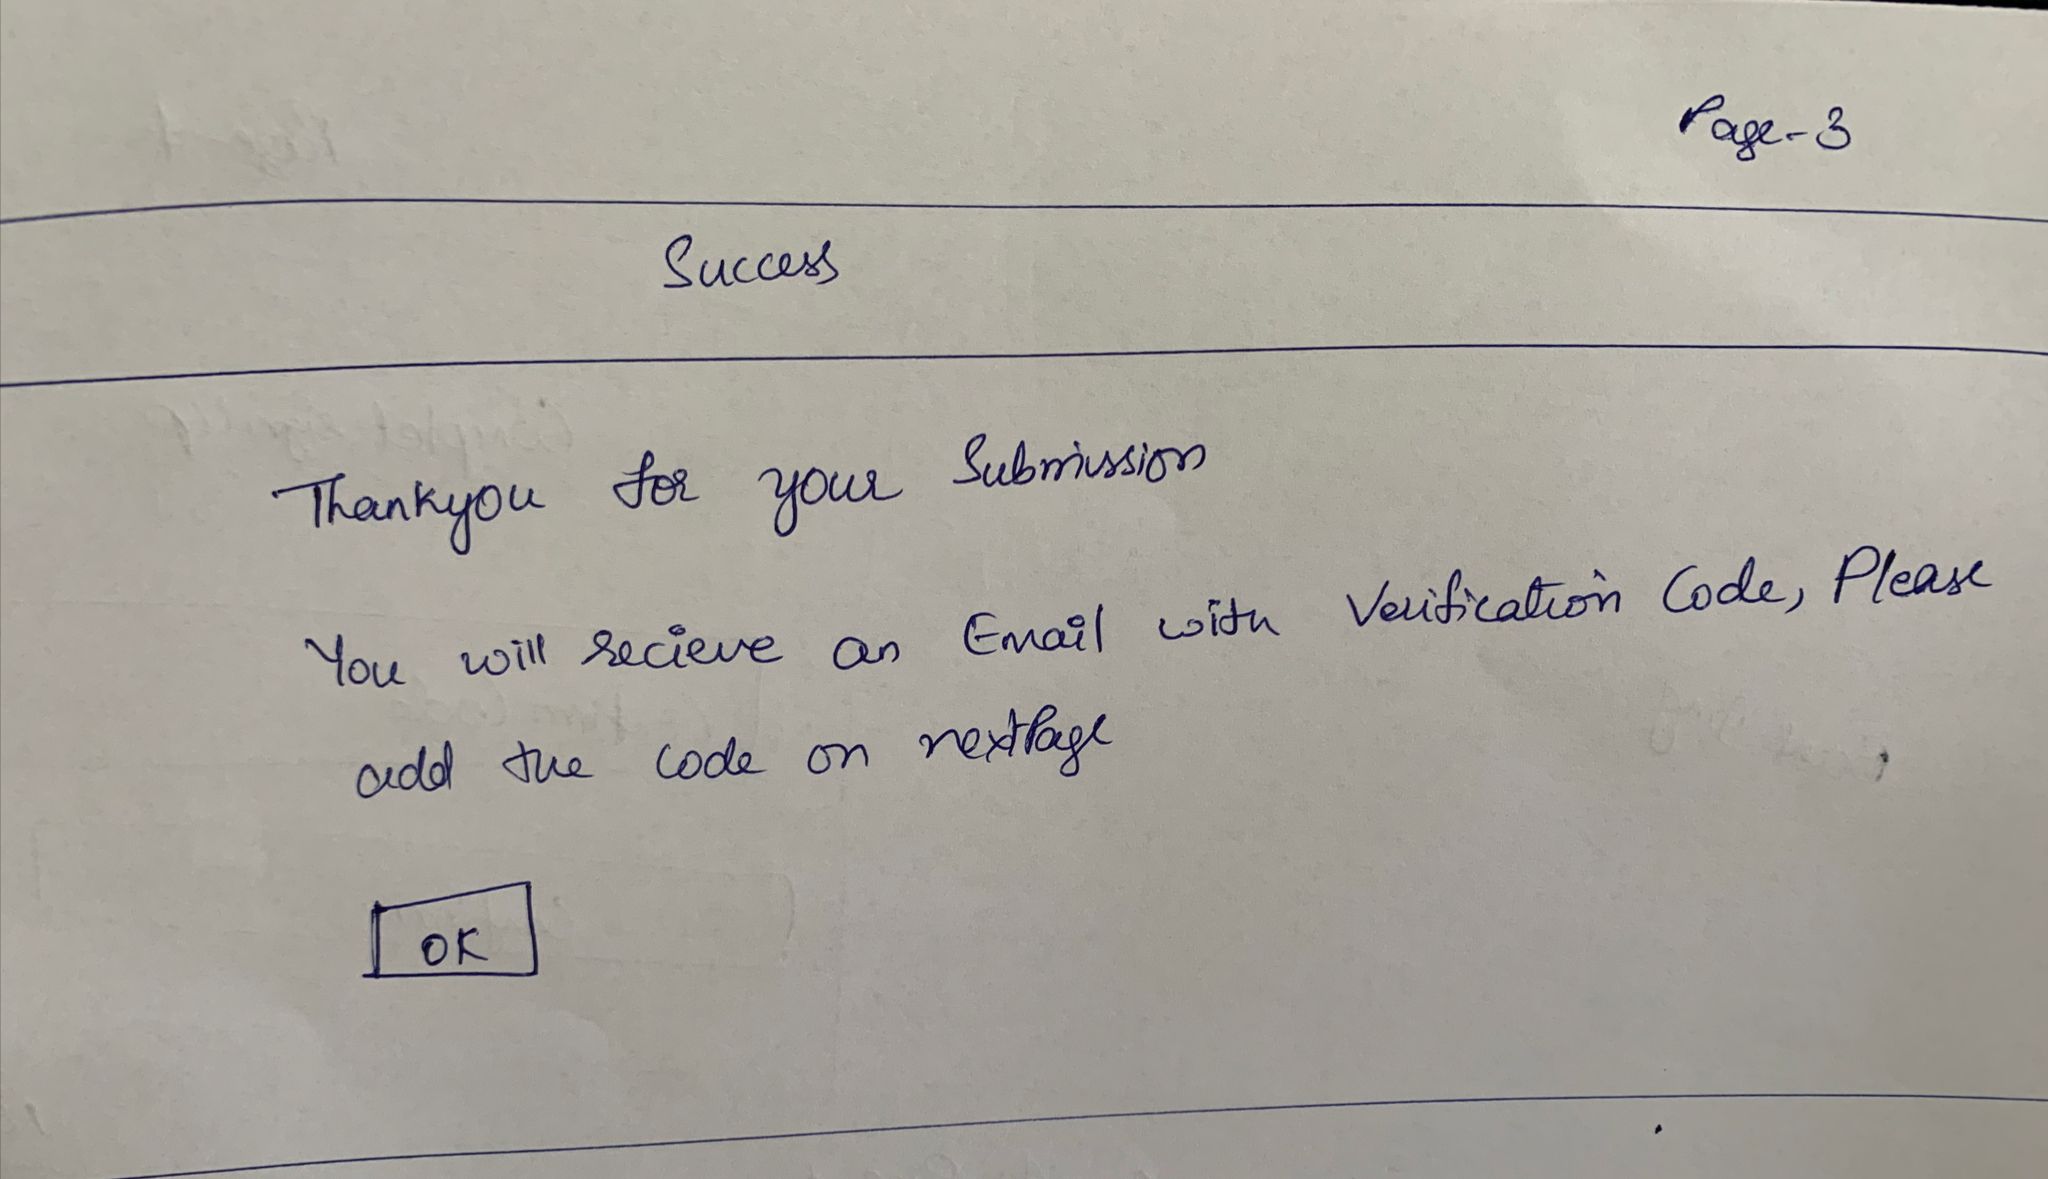 Page-3
Success
Thankyou for your Submission
You will recieve an Email with Verification Code, Please
add the code on nextPage
OK